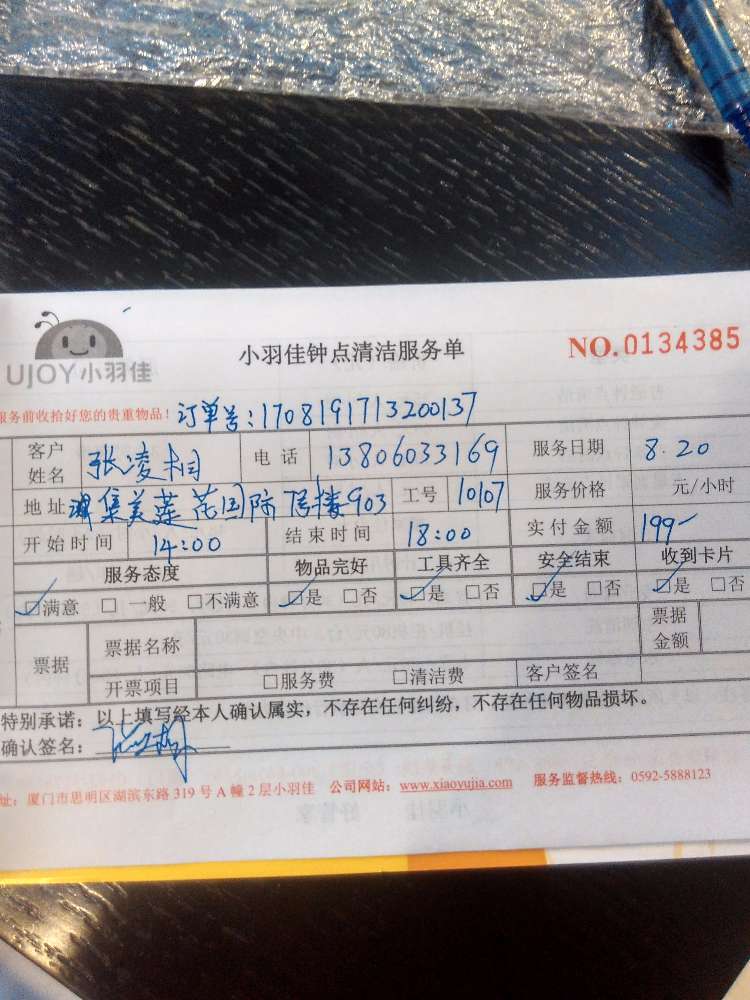 UJOY小羽佳
小羽佳钟点清洁服务单
NO.0134385
服务前收拾好您的贵重物品！ 订单号：1708191713200137
客户姓名 张凌桐 电话 13806033169 服务日期 8.20
地址 集美莲花国际 号楼903 工号 10107 服务价格 元/小时
开始时间 14:00 结束时间 18:00 实付金额 199
服务态度 物品完好 工具齐全 安全结束 收到卡片
☑满意 □一般 □不满意 ☑是 □否 ☑是 □否 ☑是 □否 ☑是 □否
票据 票据名称 票据金额
开票项目 □服务费 □清洁费 客户签名
特别承诺：以上填写经本人确认属实，不存在任何纠纷，不存在任何物品损坏。
确认签名：
址：厦门市思明区湖滨东路319号A幢2层小羽佳 公司网站：www.xiaoyujia.com 服务监督热线：0592-5888123